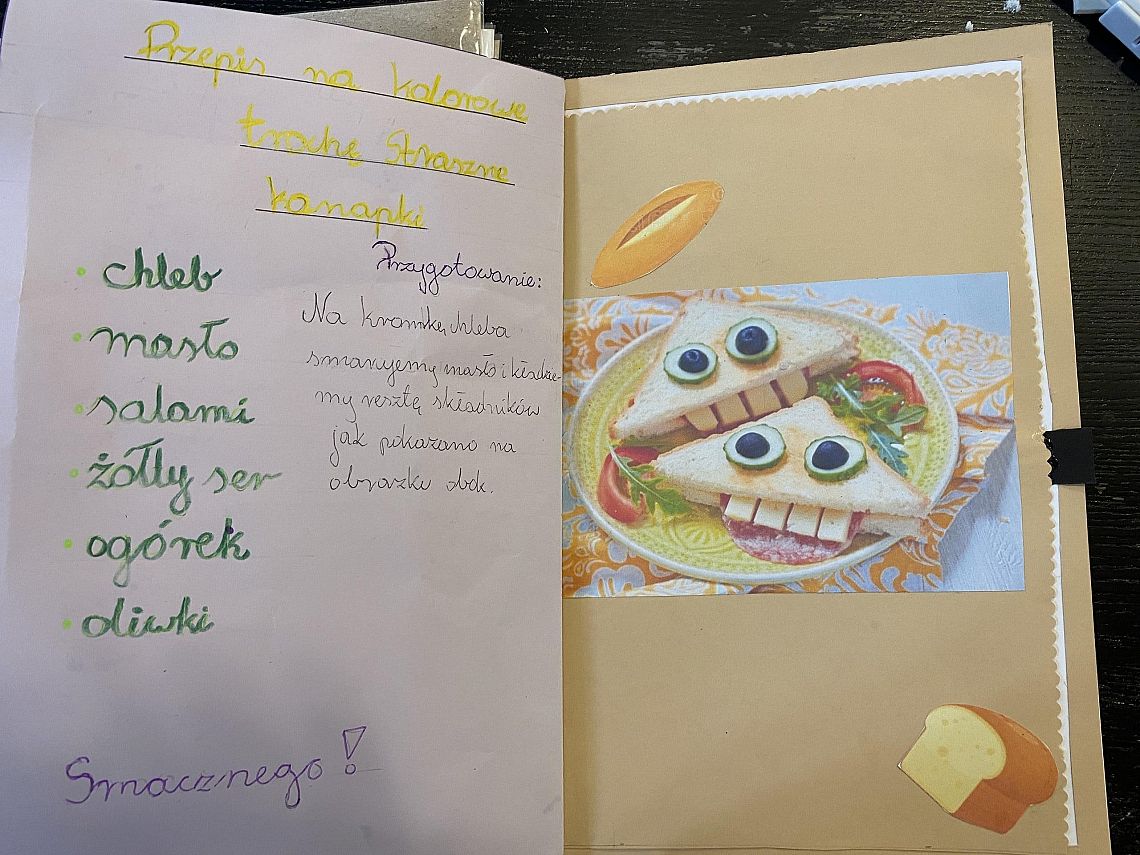 Przepis na kolorowe
trochę Straszne
kanapki
• chleb
• masło
• salami
• żółty ser
• ogórek
• oliwki
Przygotowanie:
Na kromkę chleba
smarujemy masło i kładzie-
my resztę składników
jak pokazano na
obrazku obok.
Smacznego!